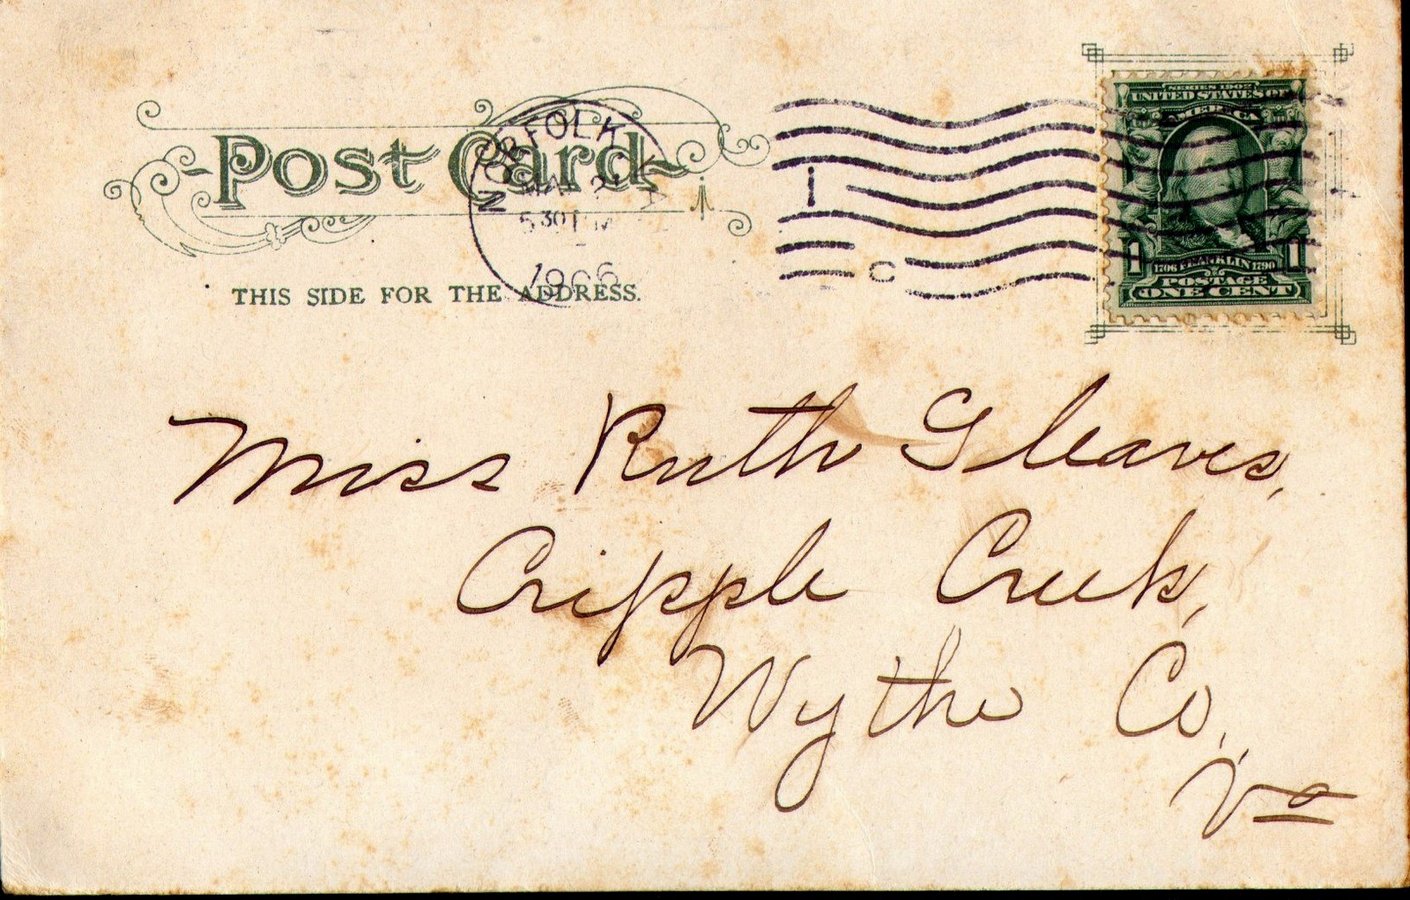 POST CARD
NORFOLK, VA
5 30 PM
1906
THIS SIDE FOR THE ADDRESS.
1
C
SERIES 1902
UNITED STATES OF
AMERICA
1 1
1706 FRANKLIN 1790
POSTAGE
ONE CENT
Miss Ruth Gleaves,
Cripple Creek,
Wythe Co.,
Va